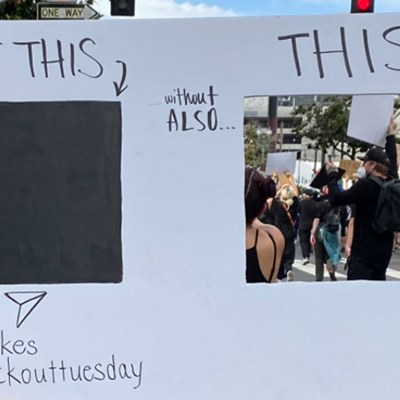 ONE WAY
T THIS
...without
ALSO...
THIS
kes
ckouttuesday